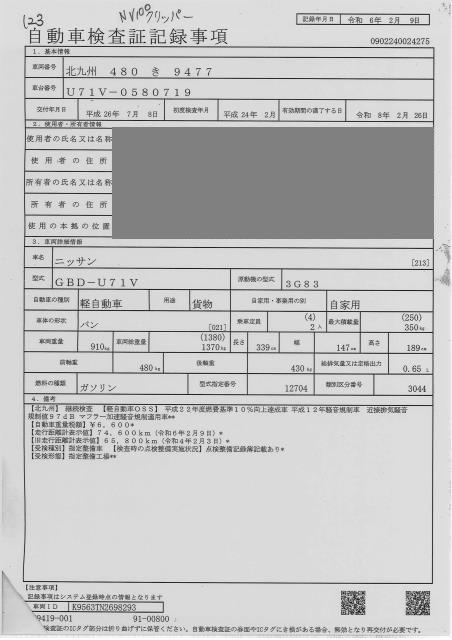 123
NV100クリッパー
記録年月日 令和 6年 2月 9日
自動車検査証記録事項
0902240024275
1. 基本情報
車両番号 北九州 480 き 9477
車台番号 U71V-0580719
交付年月日 平成 26年 7月 8日 初度検査年月 平成 24年 2月 有効期間の満了する日 令和 8年 2月 26日
2. 使用者・所有者情報
使用者の氏名又は名称
使用者の住所
所有者の氏名又は名称
所有者の住所
使用の本拠の位置
3. 車両詳細情報
車名 ニッサン [213]
型式 GBD-U71V 原動機の型式 3G83
自動車の種別 軽自動車 用途 貨物 自家用・事業用の別 自家用
車体の形状 バン [021] 乗車定員 (4) 2人 最大積載量 (250) 350kg
車両重量 910kg 車両総重量 (1380) 1370kg 長さ 339cm 幅 147cm 高さ 189cm
前軸重 480kg 後軸重 430kg 総排気量又は定格出力 0.65 L
燃料の種類 ガソリン 型式指定番号 12704 類別区分番号 3044
4. 備考
【北九州】 継続検査 【軽自動車OSS】 平成22年度燃費基準10%向上達成車 平成12年騒音規制車 近接排気騒音
規制値97dB マフラー加速騒音規制適用車**
【自動車重量税額】¥6,600*
【走行距離計表示値】74,600km（令和6年2月9日）*
【旧走行距離計表示値】65,800km（令和4年2月3日）*
【受検種別】指定整備車 【検査時の点検整備実施状況】点検整備記録簿記載あり*
【受検形態】指定整備工場**
【注意事項】
記録事項はシステム登録時点の情報となります
車両ID K9563TN2698293
9419-001 91-00800
検査証のICタグ部分は折り曲げずに保管ください。自動車検査証の券面やICタグに毀損がある場合、郵効となり再交付が必要です。